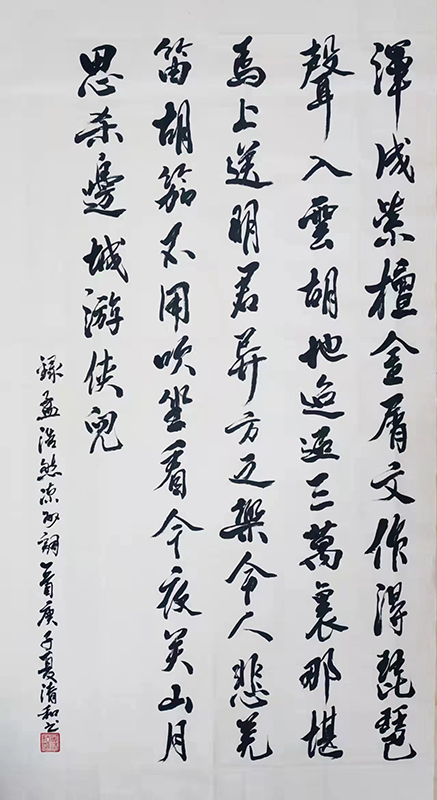 渾成紫檀金屑文作得琵琶
聲入雲胡地迢迢三萬裏那堪
馬上送明君異方之樂令人悲羌
笛胡笳不用吹坐看今夜关山月
思杀邊城游俠兒
錄孟浩然凉州詞一首庚子夏清和书